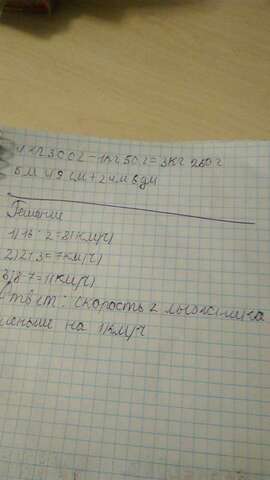 4 кг 300 г - 1 кг 50 г = 3 кг 250 г
5 м 49 см + 2 м 8 дм
Решение
1) 16 : 2 = 8 (км/ч)
2) 21:3 = 7 (км/ч)
3) 8-7 = 1 (км/ч)
Ответ: скорость 2 лыжника
меньше на 1 км/ч